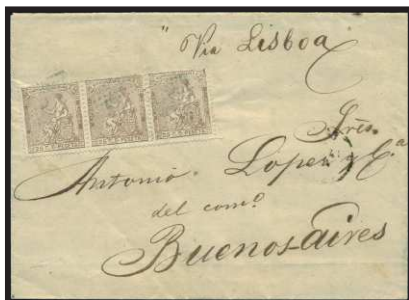 "Via Lisboa
Sres.
Antonio Lopez y Cª
del comº
Buenos-aires